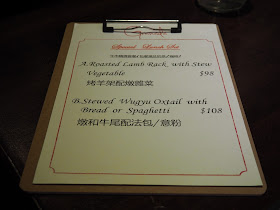 Special Lunch Set
A.Roasted Lamb Rack with Stew
Vegetable $98
烤羊架配燉雜菜
B.Stewed Wagyu Oxtail with
Bread or Spaghetti $108
燉和牛尾配法包/意粉